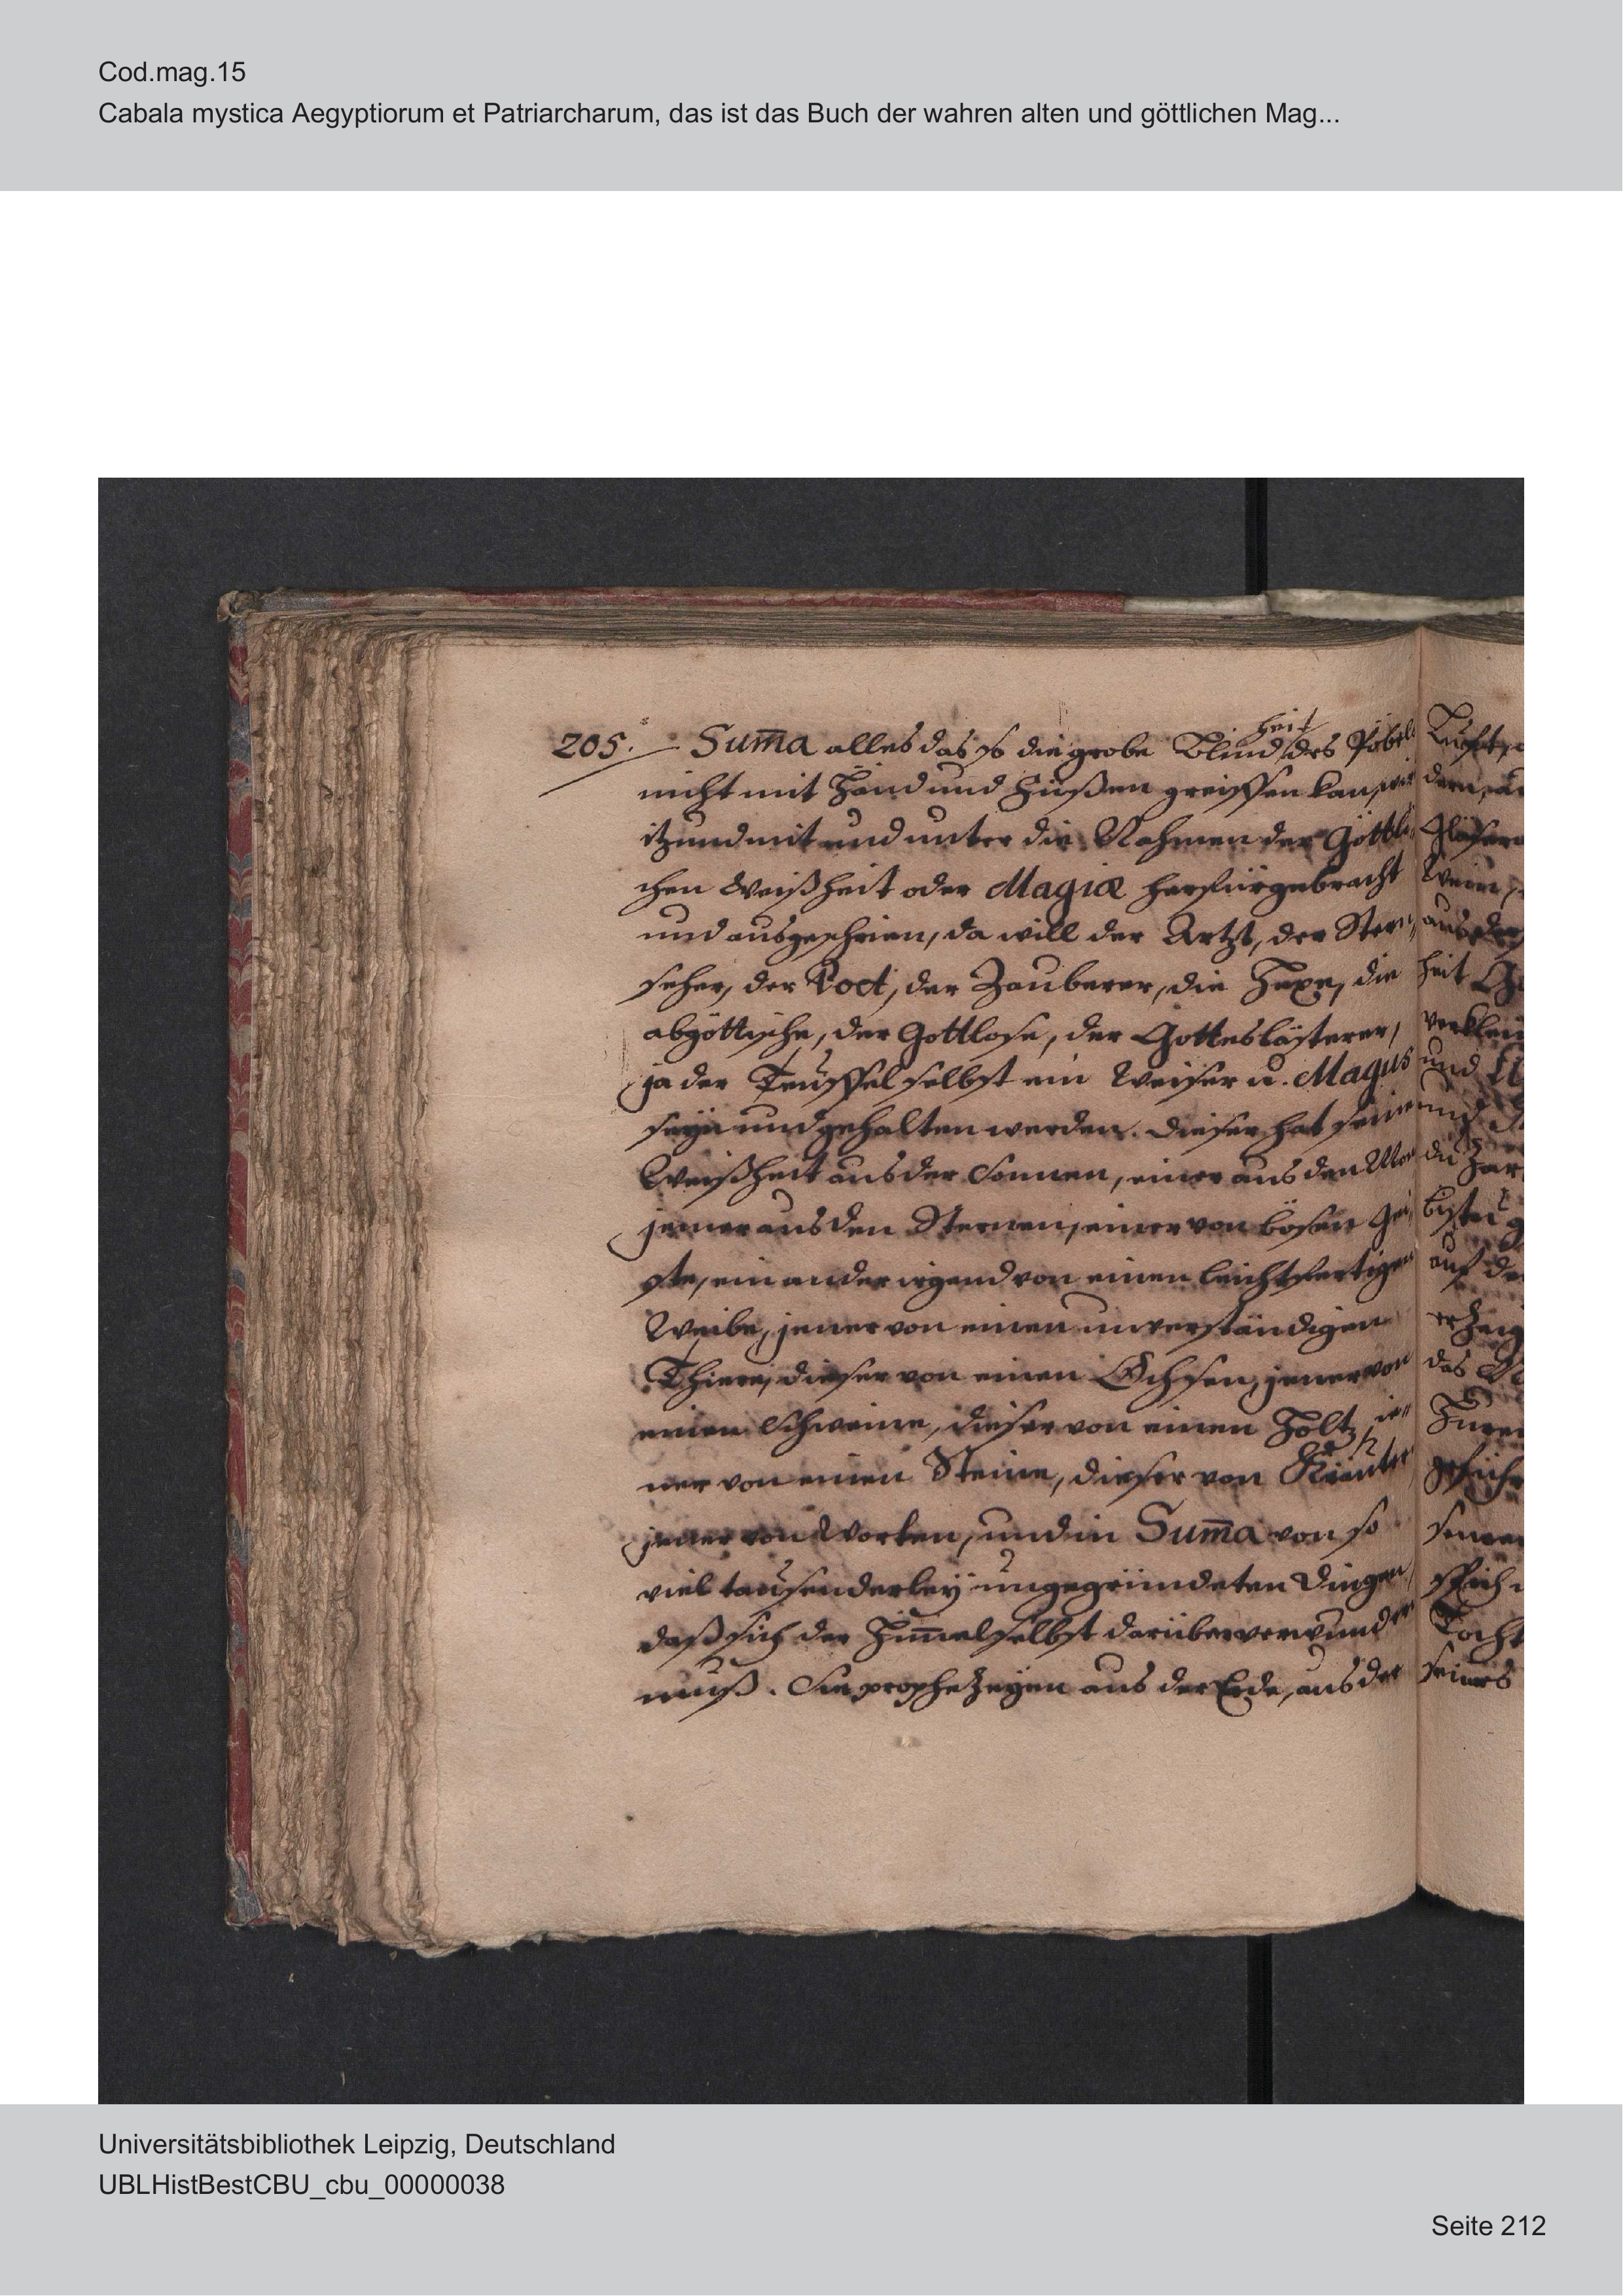 Cod.mag.15
Cabala mystica Aegyptiorum et Patriarcharum, das ist das Buch der wahren alten und göttlichen Mag...
205. Sum̄a alles das so die grobe Blindheit des Pöbels
nicht mit Händ und Füßen greiffen kan, wird
itzund mit und unter die Nahmen der Göttli-
chen Weißheit oder Magiæ herfürgebracht
und ausgeschrien, da will der Artzt, der Stern,
seher, der Poet, der Zauberer, die Hexe, die
abgöttische, der Gottlose, der Gotteslästerer,
ja der Teuffel selbst ein Weiser u. Magus
seyn und gehalten werden. Dieser hat seine
Weißheit aus der Sonnen, einer aus den
jener aus den Sternen, einer von bösen Gei,
ste, ein ander irgend von einen leichtfertigen
Weibe, jener von einen unverständigen
Thiere, dieser von einen Ochsen, jener von
einen Schweine, dieser von einen Holtz, ie-
ner von einen Steine, dieser von Kräuter
jener von Worten, und in Sum̄a von so
viel tausenderley ungegründeten Dingen,
daß sich der Him̄el selbst darüber verwundern
muß. Sie prophezeyen aus der Erde, aus der
Universitätsbibliothek Leipzig, Deutschland
UBLHistBestCBU_cbu_00000038
Seite 212